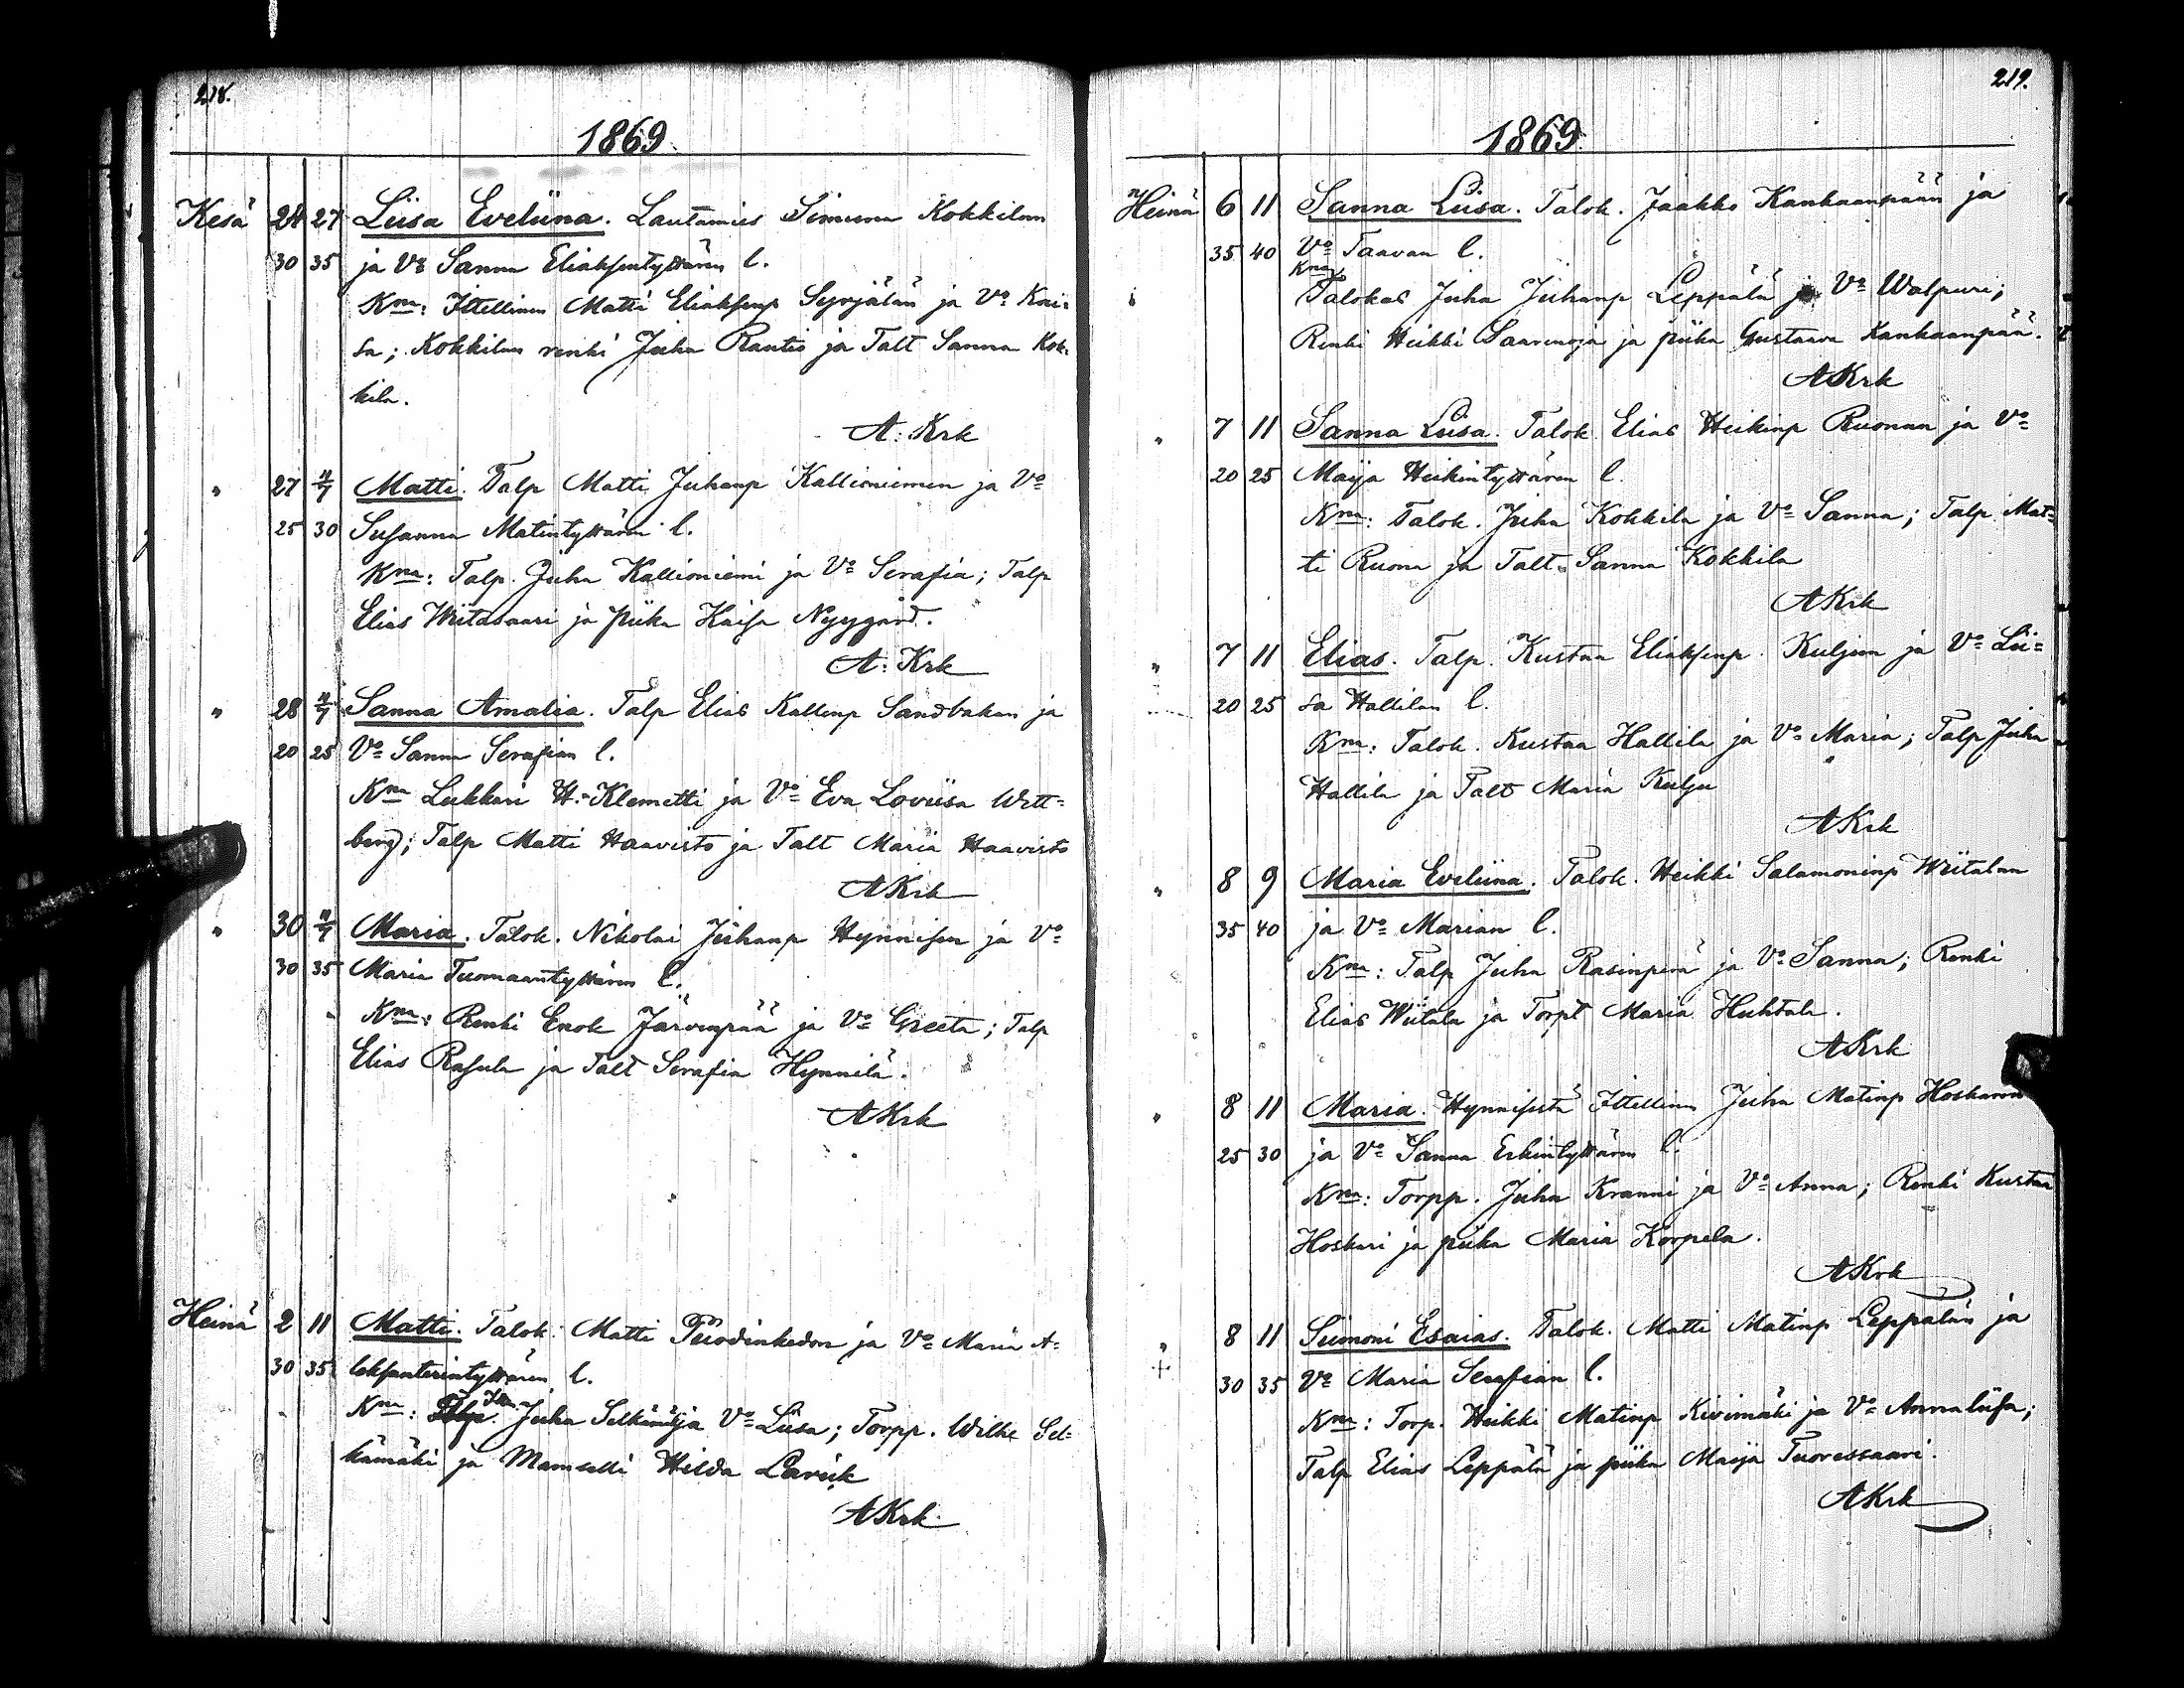 218.
1869
Kesä 24 27 Liisa Eveliina. Lautamies Simuna Kokkilan
30 35 ja Vo Sanna Eliaksentyttären l.
Kna: Itellinen Matti Eliaksenp Syrjälän ja Vo Kai=
sa; Kokkilan renki Juha Rautio ja Talt Sanna Kok=
kila.
A. Krk
" 27 4/7 Matti. Talp Matti Juhanp Kallioniemen ja Vo
25 30 Susanna Matintyttären l.
Kna: Talp. Juha Kallioniemi ja Vo Serafia; Talp
Elias Wiitasaari ja piika Kaisa Nyygård.
A. Krk
" 28 4/7 Sanna Amalia. Talp Elias Kallenp Sandbakan ja
20 25 Vo Sanna Serafian l.
Kna Lukkari H. Klemetti ja Vo Eva Loviisa Witt=
berg; Talp Matti Haavisto ja Talt Maria Haavisto
AKrk
" 30 4/7 Maria. Talok. Nikolai Juhanp Hynnisen ja Vo
30 35 Maria Tuomaantyttären l.
Kna: Renki Enok Järvenpää ja Vo Greeta; Talp
Elias Rasula ja Talt Serafia Hynnilä.
AKrk
Heinä 2 11 Matti. Talok. Matti Tuodinkedon ja Vo Maria A=
30 35 leksanterintyttären l.
Kna: Juha Selkämäki ja Vo Liisa; Torpp. Wilhe Sel=
kämäki ja Mamselli Hilda Laviik
AKrk
219.
1869
Heinä 6 11 Sanna Liisa. Talok. Jaakko Kankaanpään ja
35 40 Vo Taavan l.
Kna
Talokas Juha Juhanp Leppälä ja Vo Walpuri;
Renki Heikki Saarenoja ja piika Gustaava Kankaanpää.
AKrk
" 7 11 Sanna Liisa. Talok Elias Heikinp Ruonan ja Vo
20 25 Maija Heikintyttären l.
Kna: Talok. Juha Kokkila ja Vo Sanna; Talp. Mat=
ti Ruona ja Talt. Sanna Kokkila
AKrk
" 7 11 Elias. Talp. Kustaa Eliaksenp. Kuljun ja Vo Lii=
20 25 sa Hallilan l.
Kna: Talok. Kustaa Hallila ja Vo Maria; Talp Juha
Hallila ja Talt Maria Kulju
AKrk
" 8 9 Maria Eveliina. Talok. Heikki Salamoninp Wiitalan
35 40 ja Vo Marian l.
Kna: Talp Juha Rasinperä ja Vo Sanna; Renki
Elias Wiitala ja Torpt Maria Huhtala.
AKrk
" 8 11 Maria. Hynnisistä Itellinen Juha Matinp Hoskarin
25 30 ja Vo Sanna Erkintyttären l.
Kna: Torpp. Juha Kranni ja Vo Anna; Renki Kustaa
Hoskari ja piika Maria Korpela.
AKrk
" 8 11 Siimoni Esaias. Talok. Matti Matinp Leppälän ja
+ 30 35 Vo Maria Serafian l.
Kna: Torp. Heikki Matinp Kivimäki ja Vo Annaliisa;
Talp Elias Leppälä ja piika Maija Tuoressaari.
AKrk